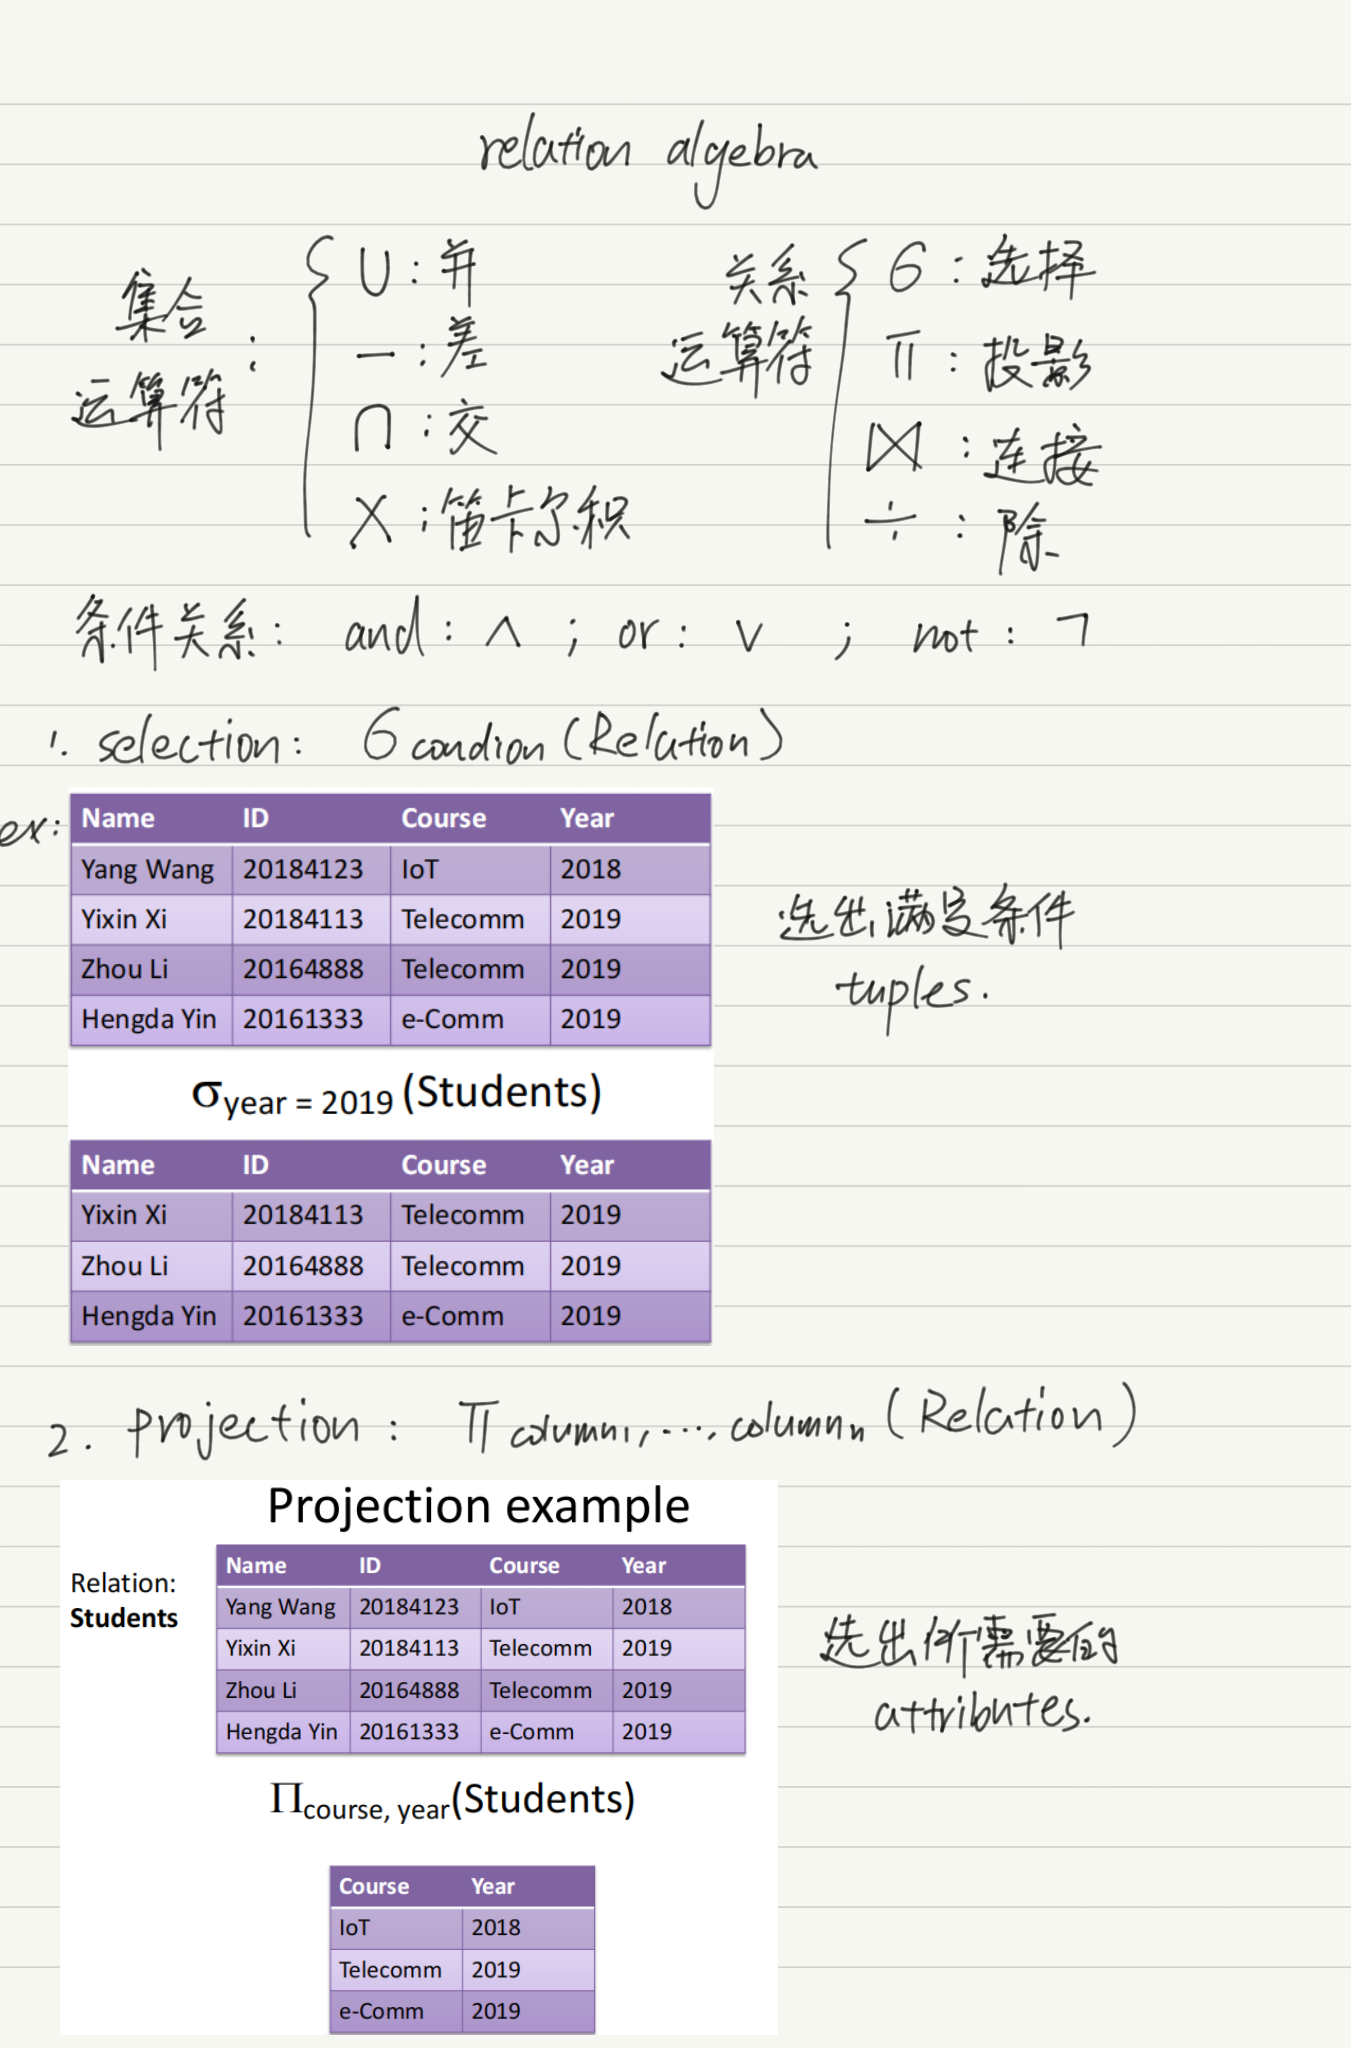 relation algebra
集合运算符: { ∪:并
－:差
∩:交
×:笛卡尔积
关系运算符 { σ:选择
π:投影
⋈:连接
÷:除
条件关系: and: ∧ ; or: ∨ ; not: ¬
1. selection: σ condion (Relation)
ex:
Name ID Course Year
Yang Wang 20184123 IoT 2018
Yixin Xi 20184113 Telecomm 2019
Zhou Li 20164888 Telecomm 2019
Hengda Yin 20161333 e-Comm 2019
选出满足条件
tuples.
σyear = 2019 (Students)
Name ID Course Year
Yixin Xi 20184113 Telecomm 2019
Zhou Li 20164888 Telecomm 2019
Hengda Yin 20161333 e-Comm 2019
2. projection: π column1,...,columnn (Relation)
Projection example
Relation:
Students
Name ID Course Year
Yang Wang 20184123 IoT 2018
Yixin Xi 20184113 Telecomm 2019
Zhou Li 20164888 Telecomm 2019
Hengda Yin 20161333 e-Comm 2019
选出所需要的
attributes.
Πcourse, year(Students)
Course Year
IoT 2018
Telecomm 2019
e-Comm 2019